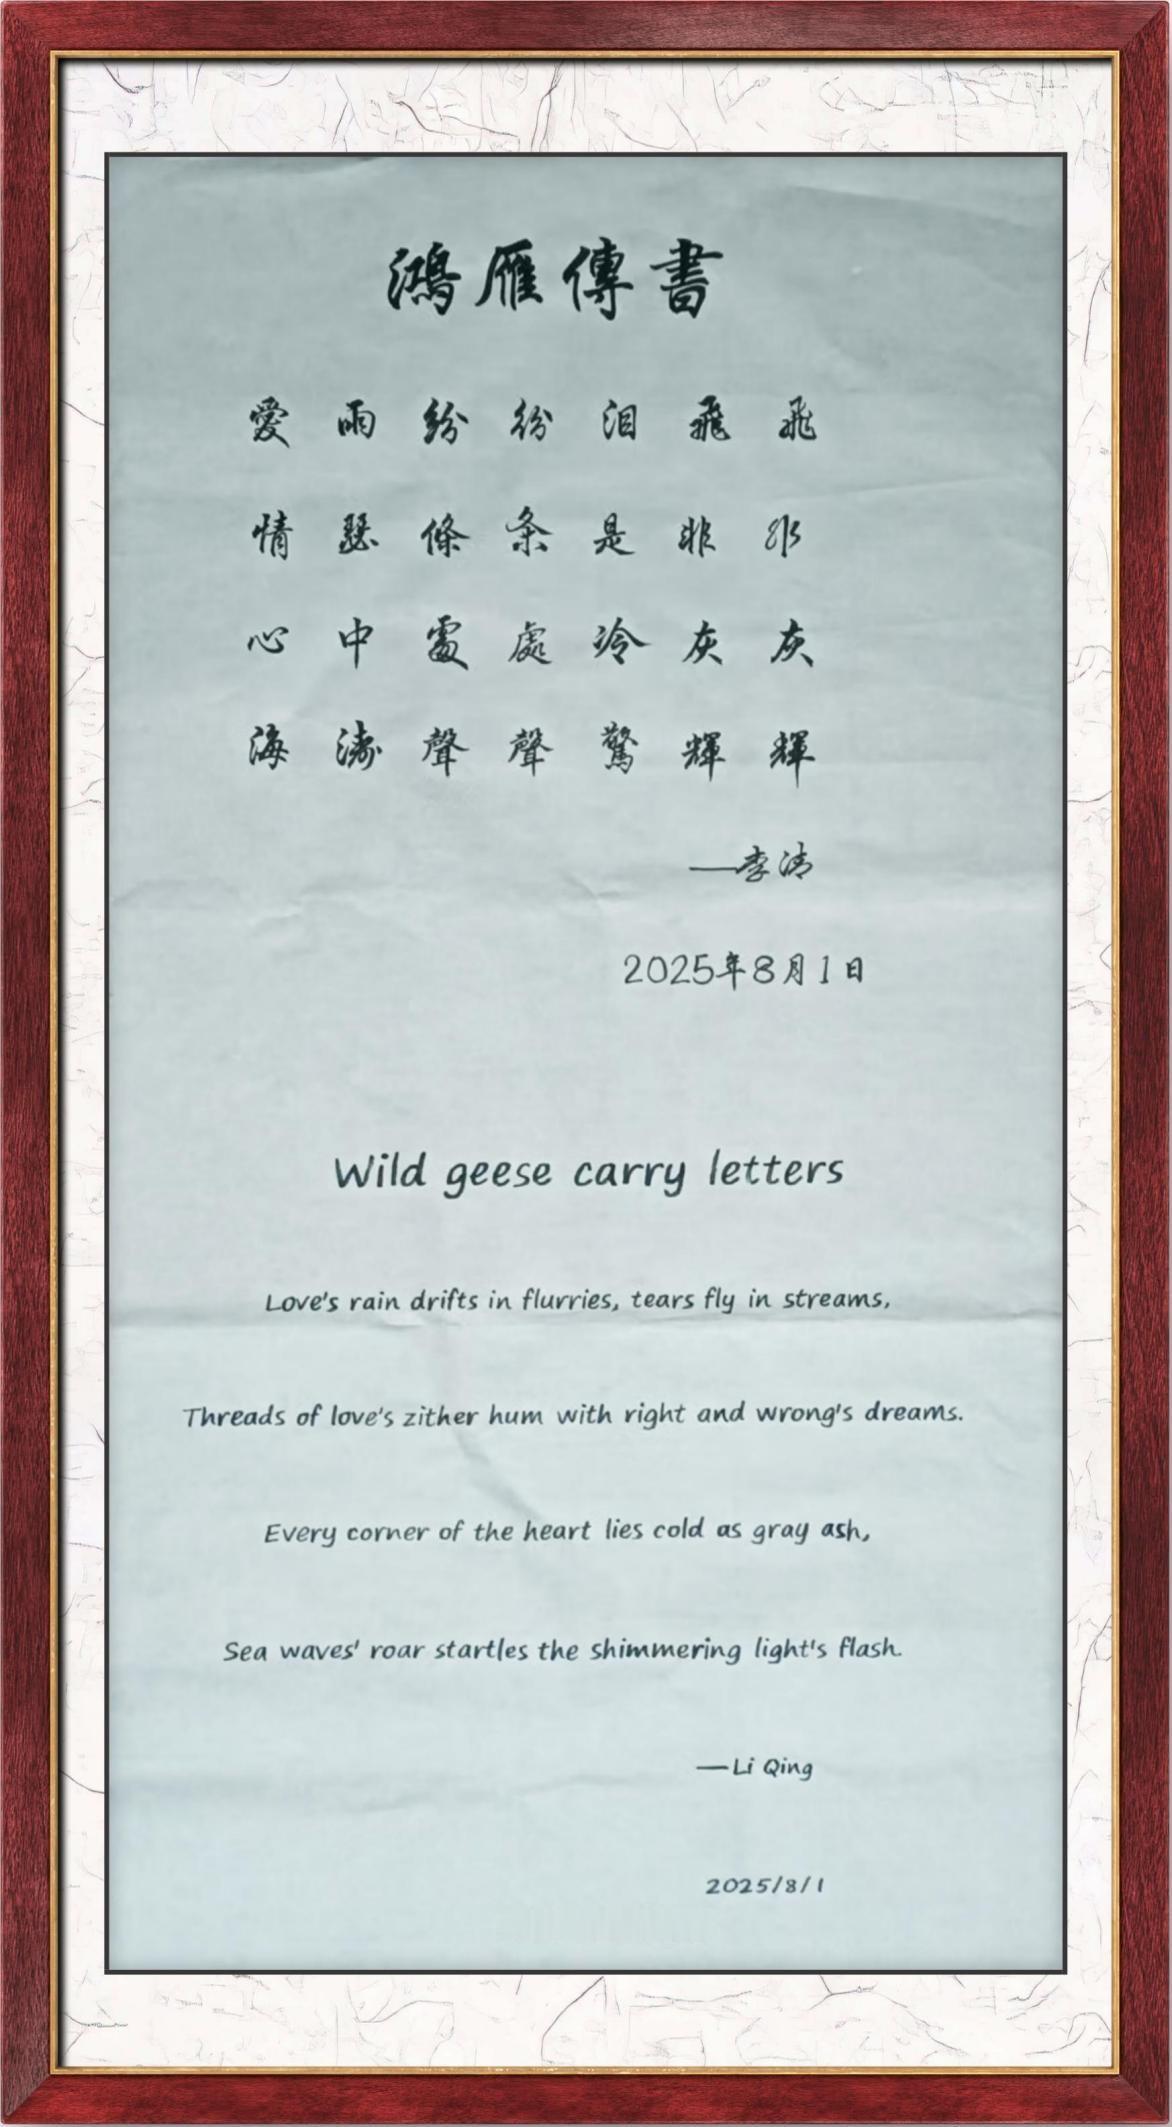 鴻雁傳書
愛雨紛紛泪飛飛
情瑟條条是非非
心中處處冷灰灰
海濤聲聲驚輝輝
—李清
2025年8月1日
Wild geese carry letters
Love's rain drifts in flurries, tears fly in streams,
Threads of love's zither hum with right and wrong's dreams.
Every corner of the heart lies cold as gray ash,
Sea waves' roar startles the shimmering light's flash.
—Li Qing
2025/8/1